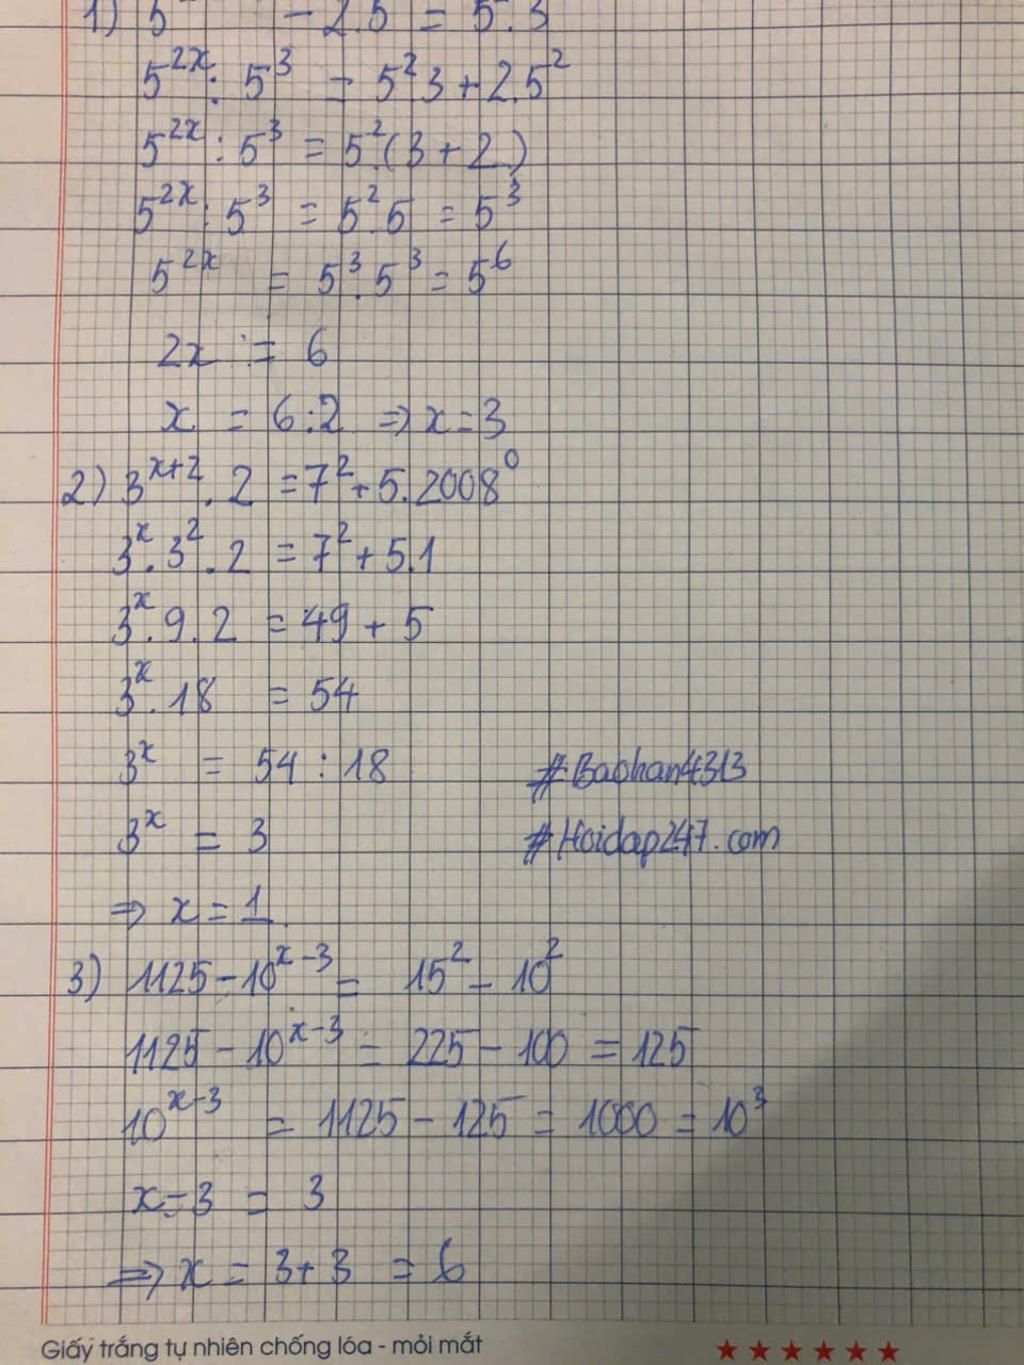 1) 5 - 2.5 = 5.3
5^2x : 5^3 = 5^2 3 + 2.5^2
5^2x : 5^3 = 5^2.(3 + 2)
5^2x : 5^3 = 5^2.5 = 5^3
5^2x = 5^3.5^3 = 5^6
2x := 6
x = 6:2 => x = 3
2) 3^x+2 . 2 = 7^2 + 5.2008^0
3^x . 3^2 . 2 = 7^2 + 5.1
3^x . 9 . 2 = 49 + 5
3^x . 18 = 54
3^x = 54 : 18
#Baohan4313
3^x = 3
#Hoidap247.com
=> x = 1.
3) 1125 - 10^x-3 = 15^2 - 10^2
1125 - 10^x-3 = 225 - 100 = 125
10^x-3 = 1125 - 125 = 1000 = 10^3
x - 3 = 3
=> x = 3 + 3 = 6
Giấy trắng tự nhiên chống lóa - mỏi mắt